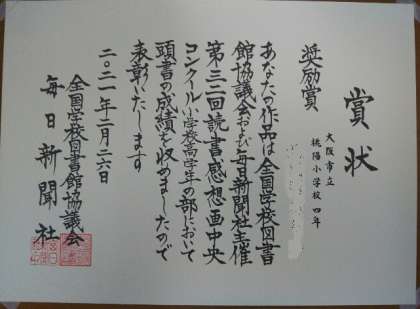 賞状
奨励賞
大阪市立
桃陽小学校 四年
あなたの作品は全国学校図書
館協議会および毎日新聞社主催
第三二回読書感想画中央
コンクール小学校高学年の部において
頭書の成績を収めましたので
表彰いたします
二〇二一年二月二六日
全国学校図書館協議会
毎日新聞社